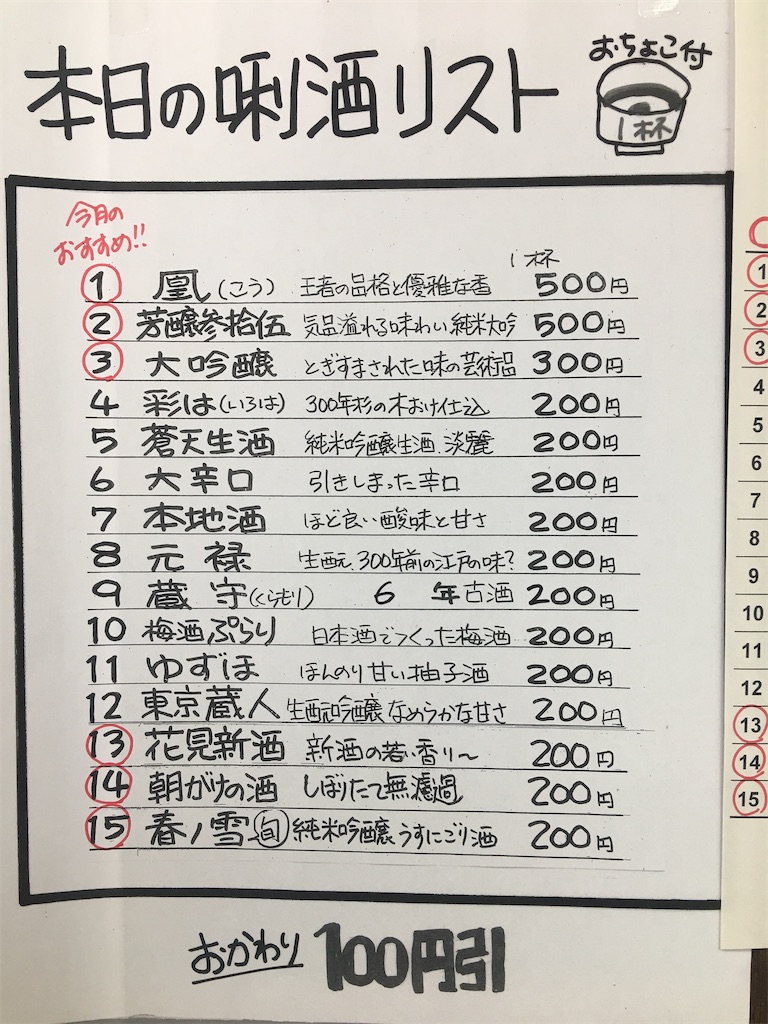 本日の唎酒リスト
おちょこ付
1杯
今月の
おすすめ!!
1杯
1 凰(こう) 王者の品格と優雅な香 500円
2 芳醸参拾伍 気品溢れる味わい純米大吟 500円
3 大吟醸 とぎすまされた味の芸術品 300円
4 彩は(いろは) 300年杉の木おけ仕込 200円
5 蒼天生酒 純米吟醸生酒、淡麗 200円
6 大辛口 引きしまった辛口 200円
7 本地酒 ほど良い酸味と甘さ 200円
8 元禄 生酛、300年前の江戸の味? 200円
9 蔵守(くらもり) 6年古酒 200円
10 梅酒ぷらり 日本酒でつくった梅酒 200円
11 ゆずほ ほんのり甘い柚子酒 200円
12 東京蔵人 生酛吟醸なめらかな甘さ 200円
13 花見新酒 新酒の若い香り〜 200円
14 朝がけの酒 しぼりたて無濾過 200円
15 春ノ雪 旬 純米吟醸うすにごり酒 200円
おかわり 100円引
1
2
3
4
5
6
7
8
9
10
11
12
13
14
15